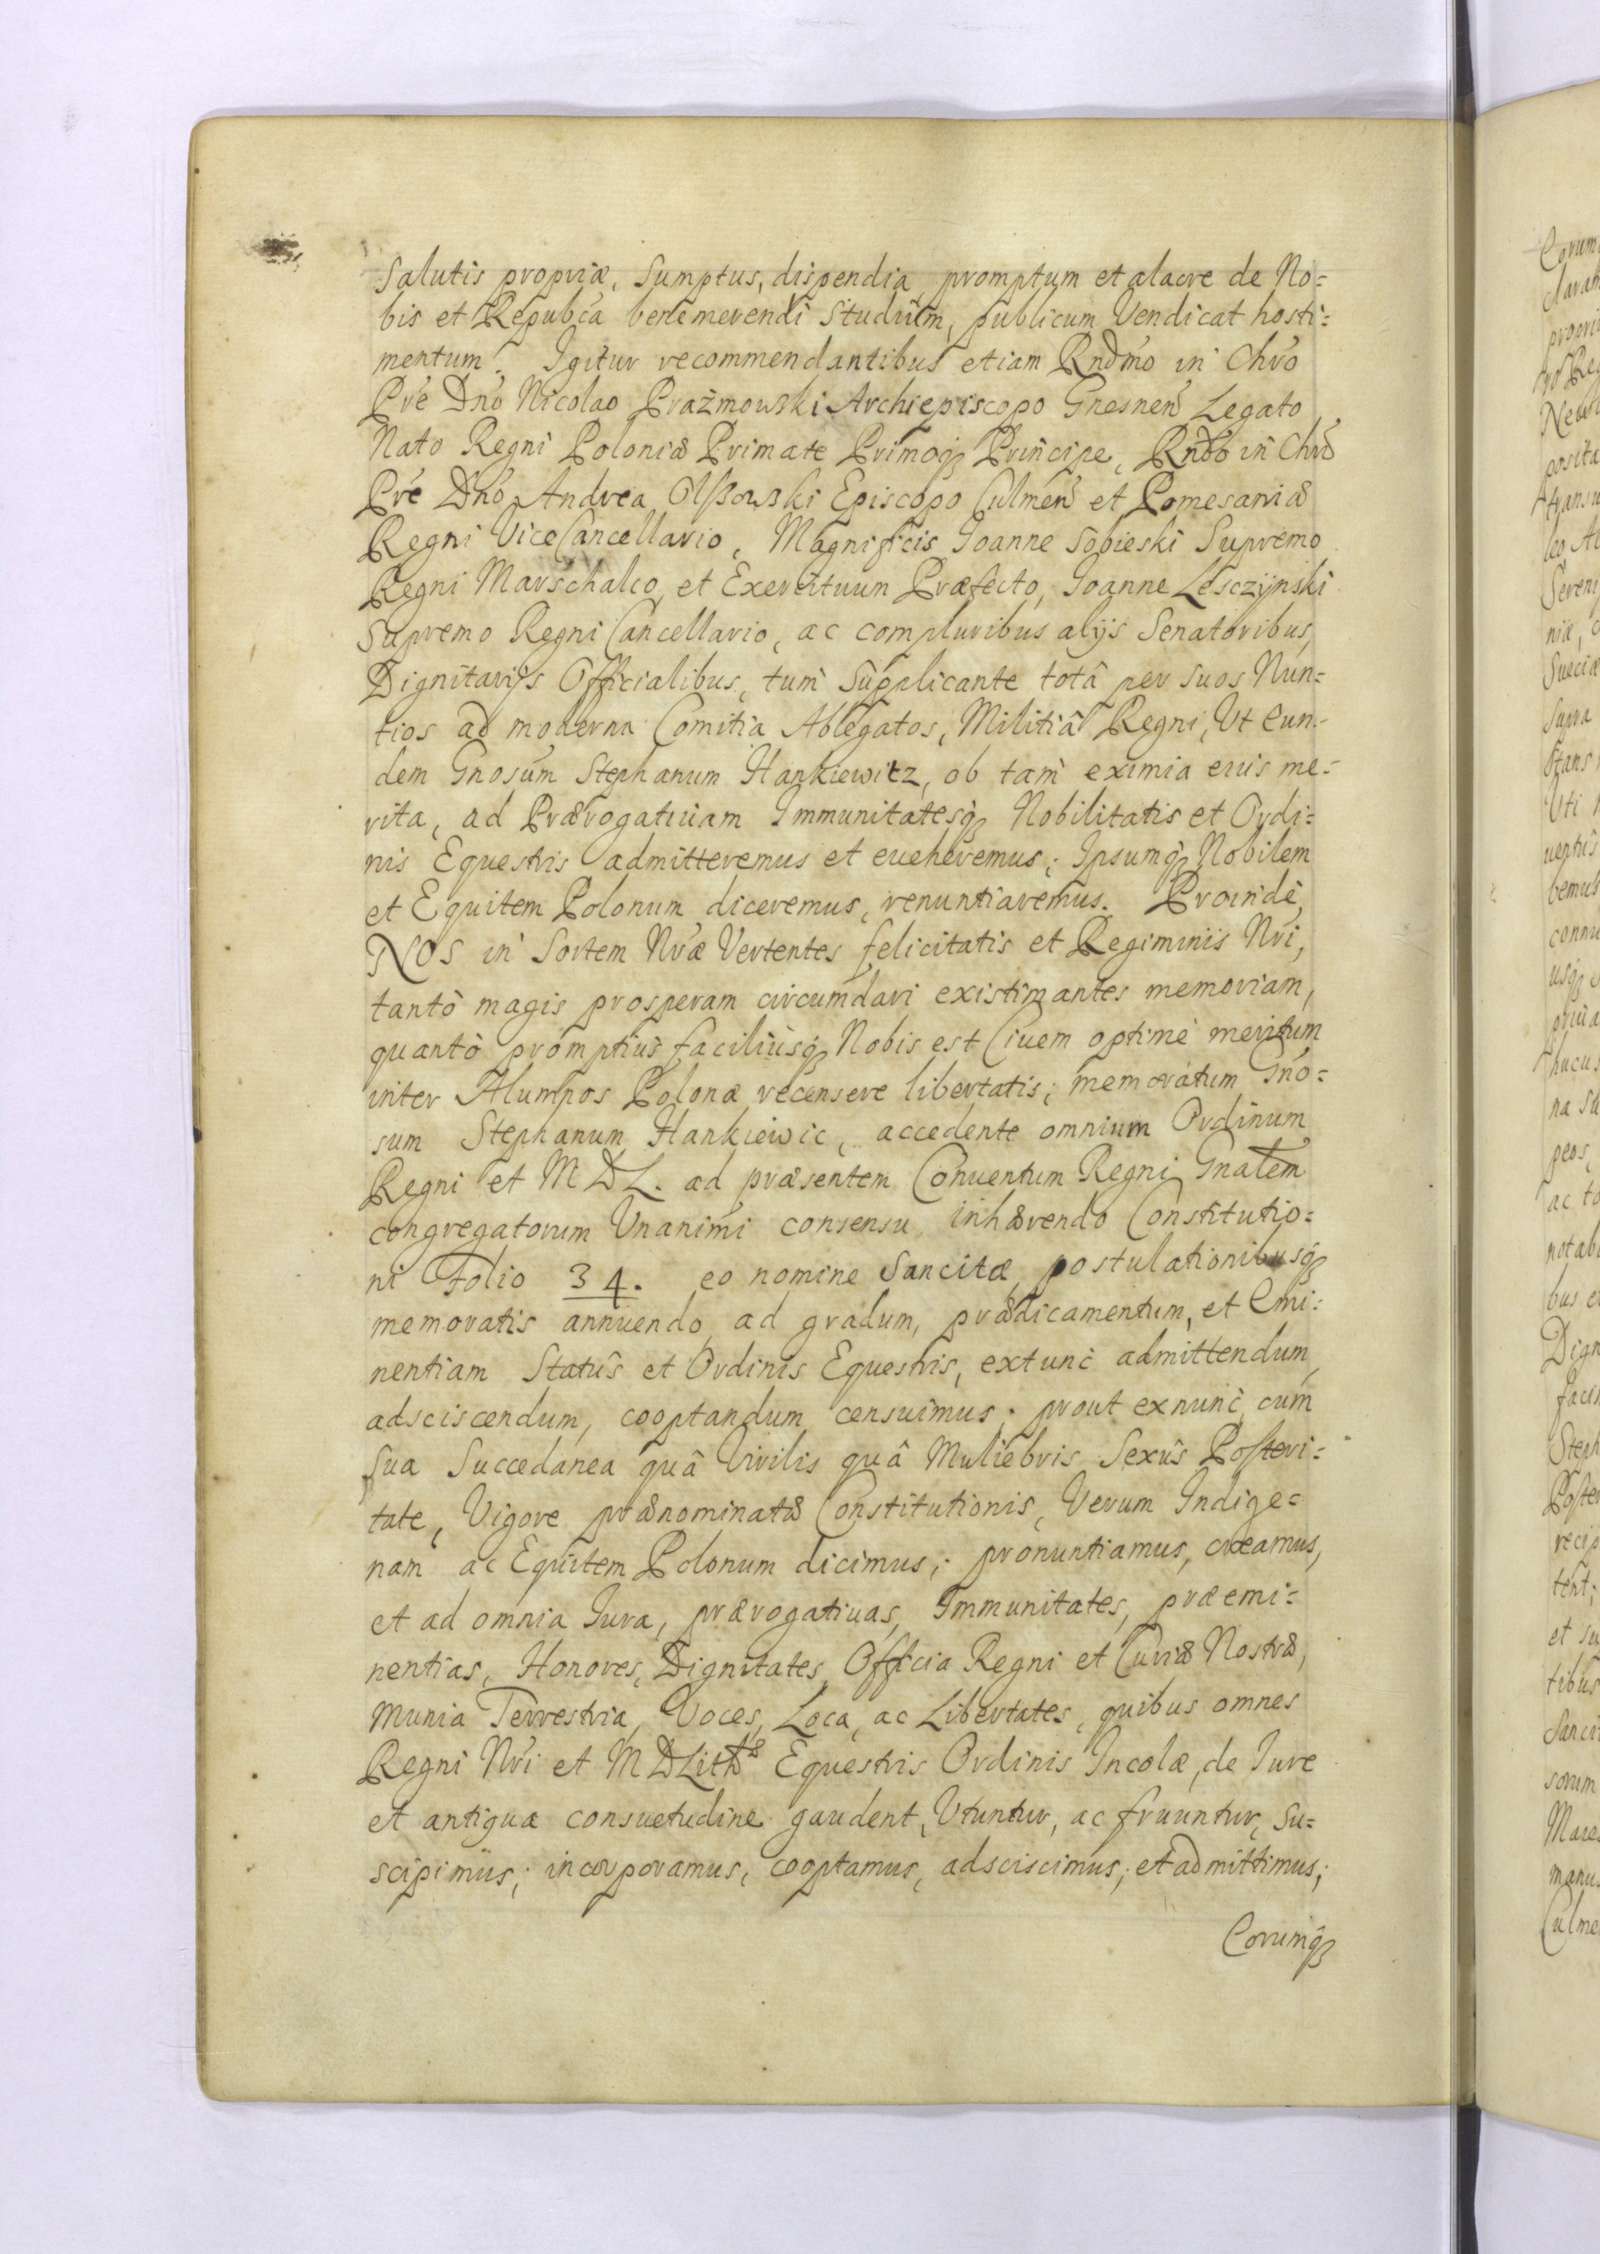 Salutis propriæ, Sumptus, dispendia, promptum et alacre de No=
bis et Repubca benemerendi Studium, publicum Vendicat hosti=
mentum. Igitur recommendantibus etiam Rndmo in Chro
Pre Dno Nicolao Prażmowski Archiepiscopo Gnesnen Legato
Nato Regni Poloniæ Primate Primoq Principe, Rndo in Chro
Pre Dno Andrea Olszowski Episcopo Culmen et Pomesaniæ
Regni ViceCancellario, Magnificis Joanne Sobieski Supremo
Regni Marschalco, et Exercituum Præfecto, Joanne Lesczijnski
Supremo Regni Cancellario, ac compluribus alijs Senatoribus,
Dignitarijs Officialibus, tum Supplicante totâ per suos Nun=
tios ad moderna Comitia Ablegatos, Militiâ Regni, Vt eun=
dem Gnosum Stephanum Hankiewitz, ob tam eximia eius me=
rita, ad Prærogatiuam Immunitatesq Nobilitatis et Ordi=
nis Equestris admitteremus et eueheremus; Ipsumq Nobilem
et Equitem Polonum diceremus, renuntiaremus. Proinde
NOS in Sortem Nræ Vertentes felicitatis et Regiminis Nri,
tantò magis prosperam circumdari existimantes memoriam,
quantò promptius faciliusq Nobis est Ciuem optimè meritum
inter Alumnos Polonæ recensere libertatis; memoratum Gno=
sum Stephanum Hankiewic, accedente omnium Ordinum
Regni et M D L. ad præsentem Conuentum Regni Gnalem
congregatorum Vnanimi consensu, inhærendo Constitutio=
ni Folio 34. eo nomine Sancitæ, postulationibusq
memoratis annuendo, ad gradum, prædicamentum, et Emi=
nentiam Statûs et Ordinis Equestris, extunc admittendum,
adsciscendum, cooptandum censuimus; prout exnunc, cum
Sua Succedanea quâ Virilis quâ Muliebris Sexûs Posteri=
tate, Vigore prænominatæ Constitutionis, Verum Indige=
nam ac Equitem Polonum dicimus; pronuntiamus, creamus,
et ad omnia Iura, prærogatiuas, Immunitates, præemi=
nentias, Honores, Dignitates, Officia Regni et Curiæ Nostræ,
Munia Terrestria, Voces, Loca, ac Libertates, quibus omnes
Regni Nri et M D Lith Equestris Ordinis Incolæ, de Iure
et antiqua consuetudine gaudent, Vtuntur, ac fruuntur, su=
scipimus; incorporamus, cooptamus, adsciscimus; et admittimus;
Eorumq